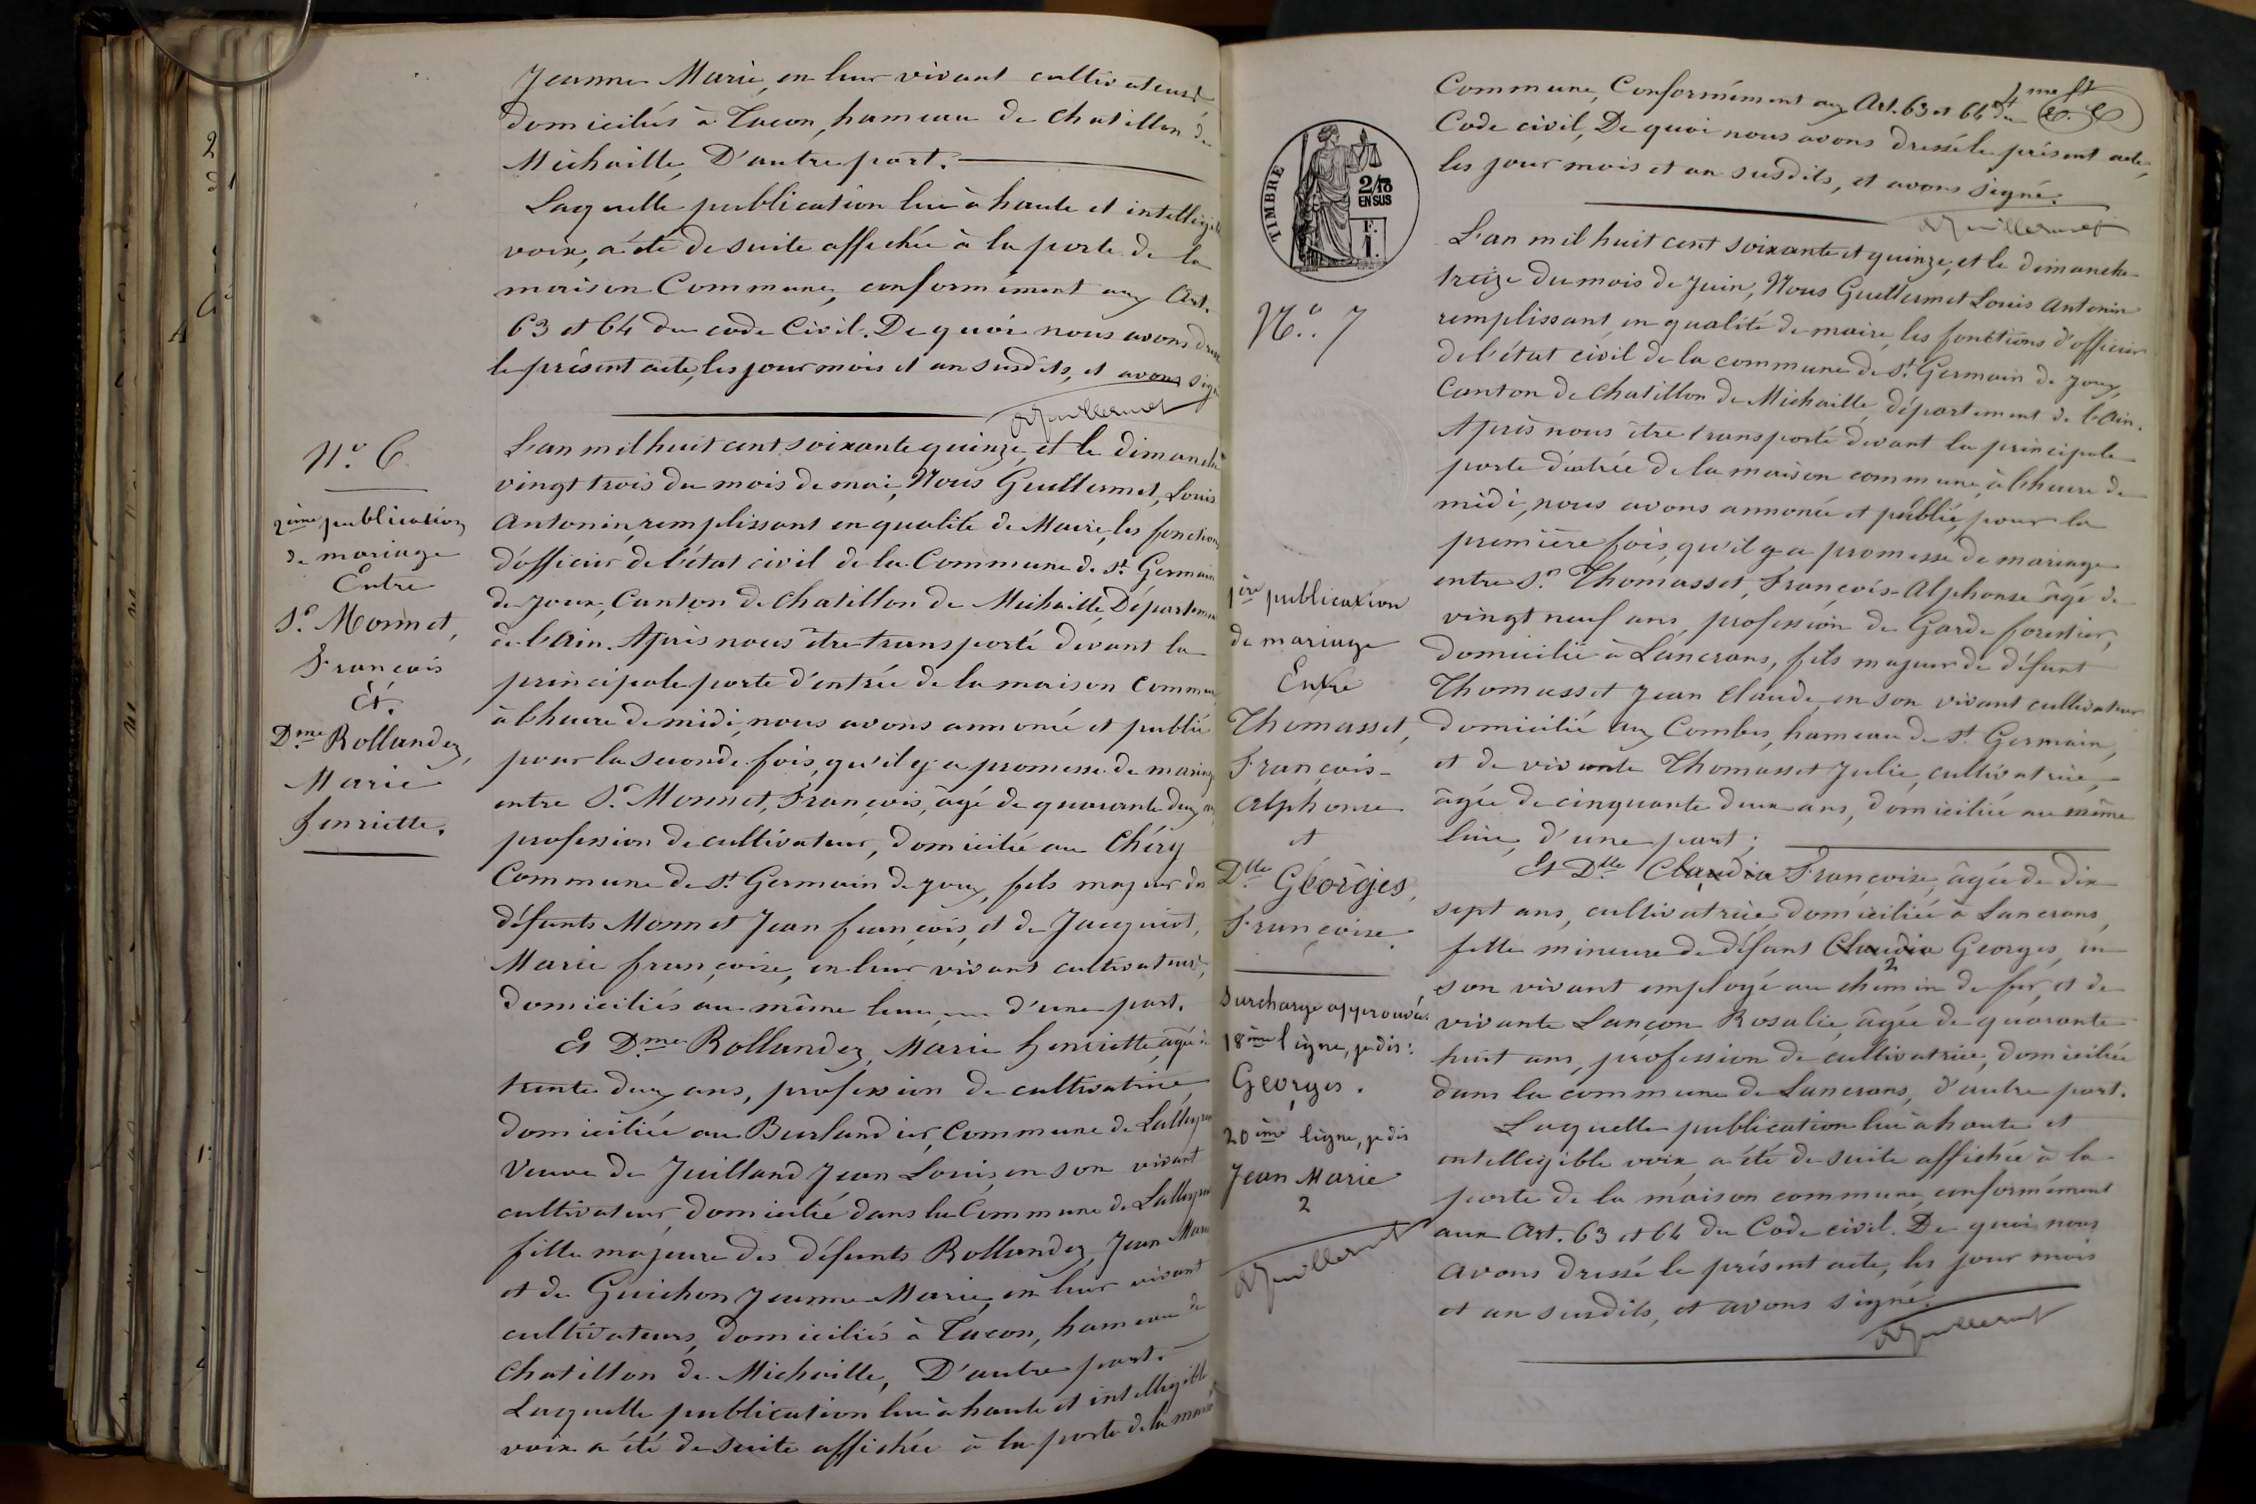 Jeanne Marie, en leur vivant cultivateurs
domiciliés à Tacon, hameau de Chatillon de
Michaille, D'autre part.
Laquelle publication lue à haute et intelligible
voix, a été de suite affichée à la porte de la
maison Commune, conformément aux Art.
63 et 64 du code Civil. De quoi nous avons dressé
le présent acte, les jour mois et an susdits, et avons signé
AGuillermet
N° 6
2ème publication
de mariage
Entre
Sr. Monnet,
François
Et.
Dme Rollandez,
Marie
henriette.
L'an mil huit cent soixante quinze, et le dimanche
vingt trois du mois de mai, Nous Guillermet, Louis
Antonin, remplissant en qualité de Maire, les fonctions
d'officier de l'état civil de la Commune de St. Germain
de Joux, Canton de Chatillon de Michaille, Département
de l'Ain. Après nous être transporté devant la
principale porte d'entrée de la maison Commune
à l'heure de midi, nous avons annoncé et publié
pour la seconde fois, qu'il y a promesse de mariage
entre Sr. Monnet, François, âgé de quarante deux ans,
profession de cultivateur, domicilié au Chéry
Commune de St. Germain de Joux, fils majeur des
défunts Monnet Jean françois, et de Jacquiot,
Marie françoise, en leur vivant cultivateurs,
domiciliés au même lieu, d'une part.
Et Dme Rollandez, Marie henriette, âgée de
trente deux ans, profession de cultivatrice
domiciliée au Burlandier, Commune de Lalleyriat
Veuve de Juilland Jean Louis, en son vivant
cultivateur, domicilié dans la Commune de Lalleyriat
fille majeure des défunts Rollandez, Jean Marie
et de Guichon Jeanne Marie, en leur vivant
cultivateurs, domiciliés à Tacon, hameau de
Chatillon de Michaille, D'autre part.
Laquelle publication lue à haute et intelligible
voix a été de suite affichée à la porte de la maison
Commune, Conformément aux Art. 63 et 64 du
Code civil, De quoi nous avons dressé le présent acte,
les jour mois et an susdits, et avons signé.
AGuillermet
TIMBRE
2/10
EN SUS
F.
1.
N° 7
1ère publication
de mariage
Entre
Thomasset,
François-
Alphonse
et
Dlle Géorges,
Françoise.
Surcharge approuvée.
18ème ligne, je dis:
Georges.
20ème ligne, je dis
Jean Marie
2
AGuillermet
L'an mil huit cent soixante et quinze, et le dimanche
treize du mois de Juin, Nous Guillermet Louis Antonin
remplissant, en qualité de maire, les fonctions d'officier
de l'état civil de la commune de St. Germain de Joux,
Canton de Chatillon de Michaille, département de l'Ain.
Après nous être transporté devant la principale
porte d'entrée de la maison commune, à l'heure de
midi, nous avons annoncé et publié, pour la
première fois, qu'il y a promesse de mariage
entre Sr. Thomasset, François-Alphonse âgé de
vingt neuf ans, profession de Garde forestier,
domicilié à Lancrans, fils majeur de défunt
Thomasset Jean Claude, en son vivant cultivateur
domicilié aux Combes, hameau de St. Germain,
et de vivante Thomasset Julie, cultivatrice,
âgée de cinquante deux ans, domiciliée au même
lieu, d'une part;
Et Dlle Claudia Françoise, âgée de dix
sept ans, cultivatrice domiciliée à Lancrans,
fille mineure de défunt Claudia Georges, en
2
son vivant employé au chemin de fer, et de
vivante Lançon Rosalie, âgée de quarante
huit ans, profession de cultivatrice, domiciliée
dans la commune de Lancrans, d'autre part.
Laquelle publication lue à haute et
intelligible voix a été de suite affichée à la
porte de la maison commune, conformément
aux Art. 63 et 64 du Code civil. De quoi nous
avons dressé le présent acte, les jour mois
et an susdits, et avons signé.
AGuillermet